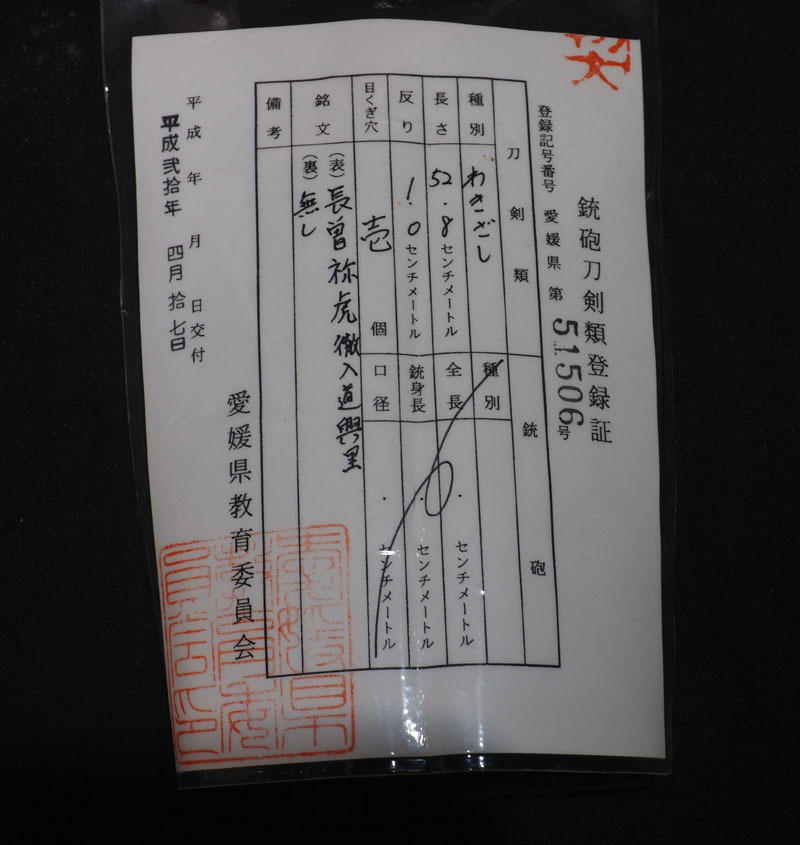 銃砲刀剣類登録証
登録記号番号 愛媛県 第 51506 号
刀剣類
銃砲
種別 わきざし
種別
長さ 52.8 センチメートル
全長 . センチメートル
反り 1.0 センチメートル
銃身長 . センチメートル
目くぎ穴 壱 個
口径 . センチメートル
銘文 (表) 長曽祢虎徹入道興里
(裏) 無し
備考
平成 年 月 日交付
平成弐拾年 四月 拾七日
愛媛県教育委員会